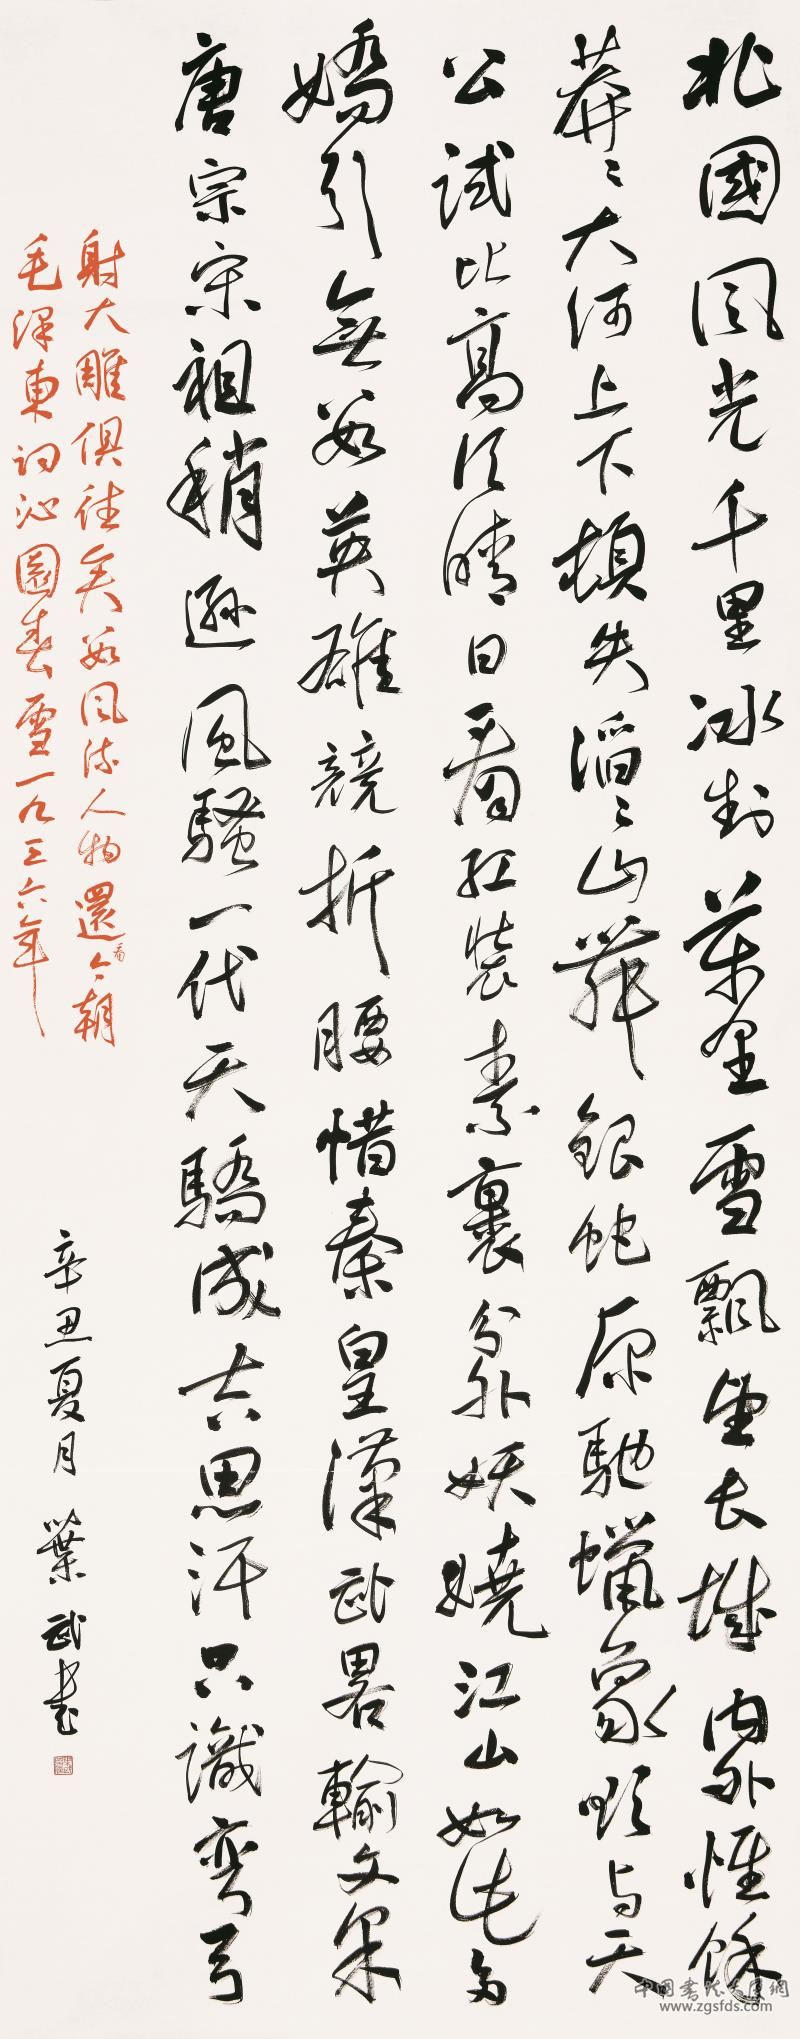 北國風光千里冰封萬里雪飄望長城內外惟餘
莽〻大河上下頓失滔〻山舞銀蛇原馳蠟象欲与天
公試比高須晴日看紅裝素裹分外妖嬈江山如此多
嬌引無數英雄競折腰惜秦皇漢武略輸文采
唐宗宋祖稍遜風騷一代天驕成吉思汗只識彎弓
射大雕俱往矣數風流人物還看今朝
毛澤東詞沁園春雪一九三六年
辛丑夏月 葉武書
中国书法美展網
www.zgsfds.com